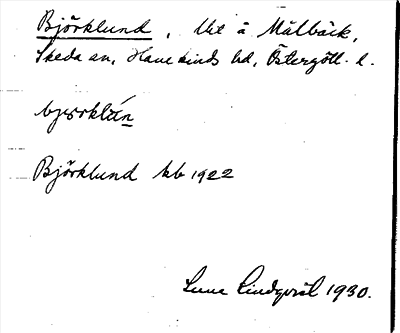 Björklund, Ut å Målbäck,
Skeda sn, Hanekinds hd, Östergötl. l.
Björklund kb 1922
Sune Lindqvist 1930.